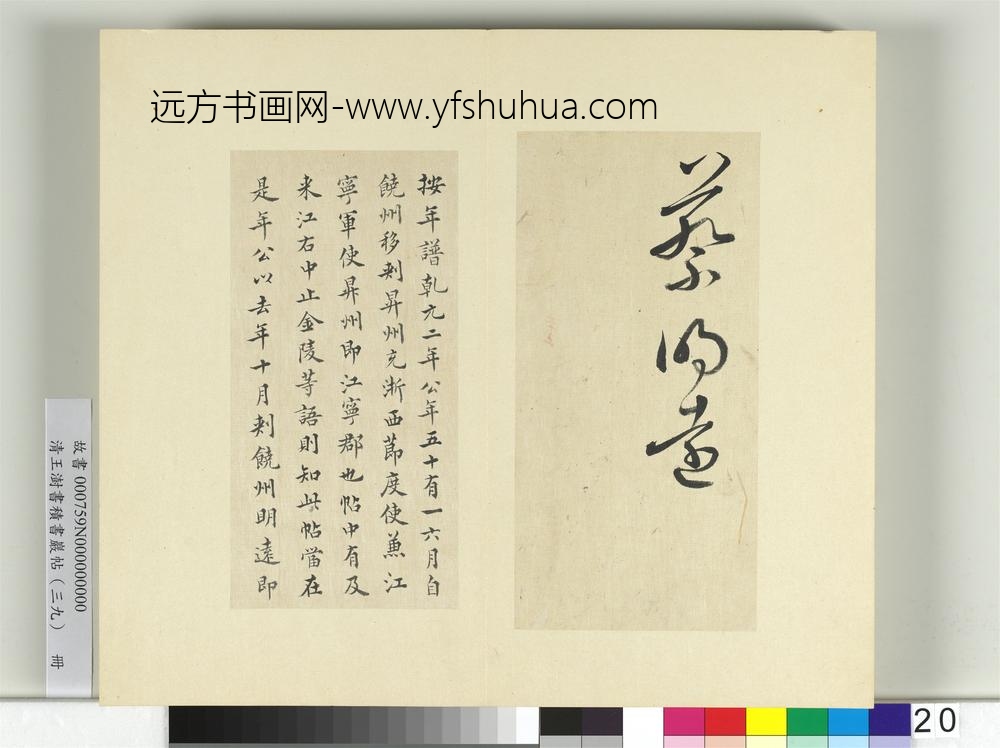 远方书画网-www.yfshuhua.com
蔡明遠
按年譜乾元二年公年五十有一六月自
饒州移刺昇州充浙西節度使兼江
寧軍使昇州即江寧郡也帖中有及
来江右中止金陵等語則知此帖當在
是年公以去年十月刺饒州明遠即
故書 000759N000000000
清王澍書積書巖帖(三九) 冊
20